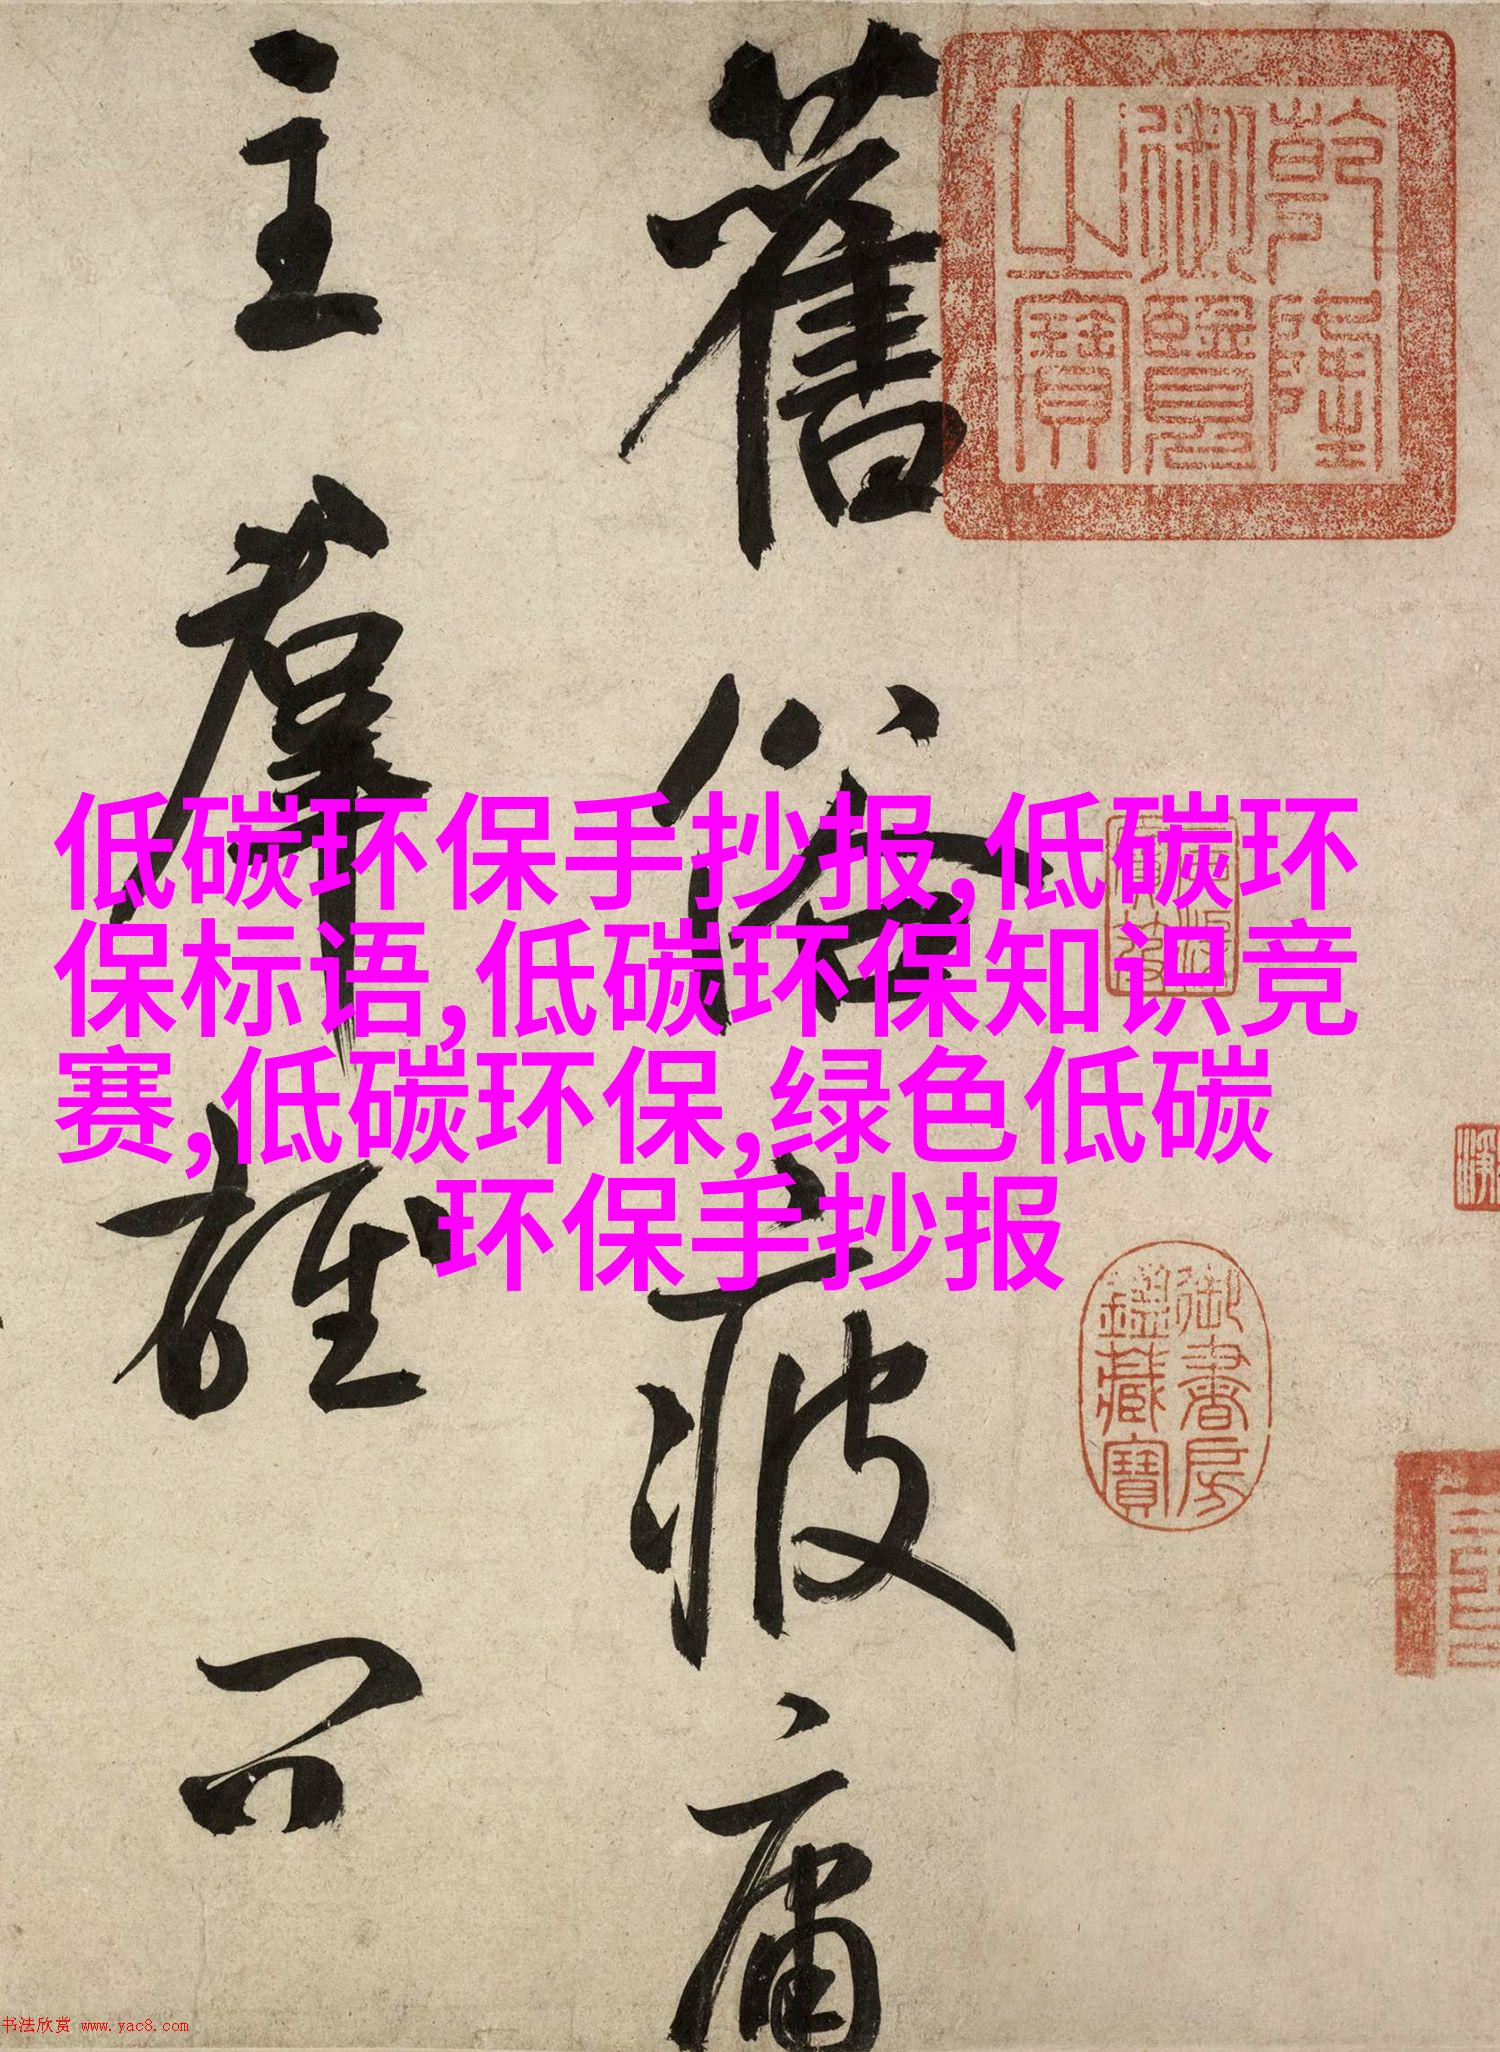 舊俗疲庸
主羣雄
乾隆
御覽
之寶
低碳环保手抄报,低碳环
保标语,低碳环保知识竞
赛,低碳环保,绿色低碳
环保手抄报
御書房
鑑藏寶
书法欣赏 www.yac8.com